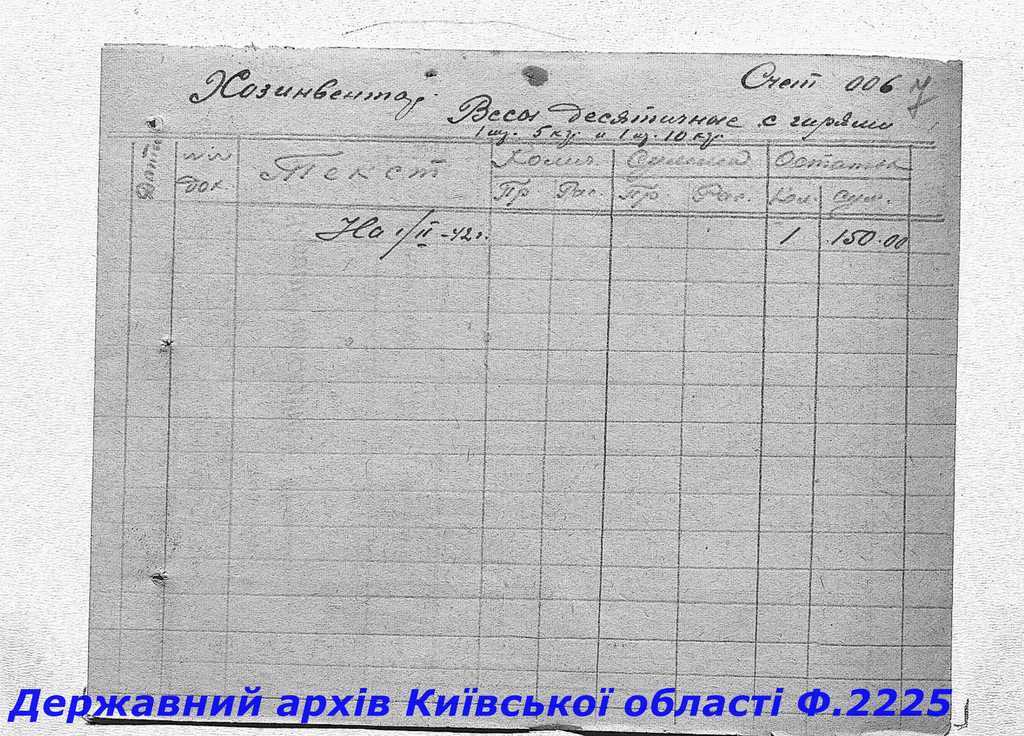 Счет 006 7
Хозинвентар.
Весы десятичные с гирями
1 шт. 5 кг. и 1 шт. 10 кг.
Дата №№ док. Текст Колич. Сумма Остаток
Пр. Рас. Пр. Рас. Кол. сум.
На 1/II-42г. 1 150.00
Державний архів Київської області Ф.2225